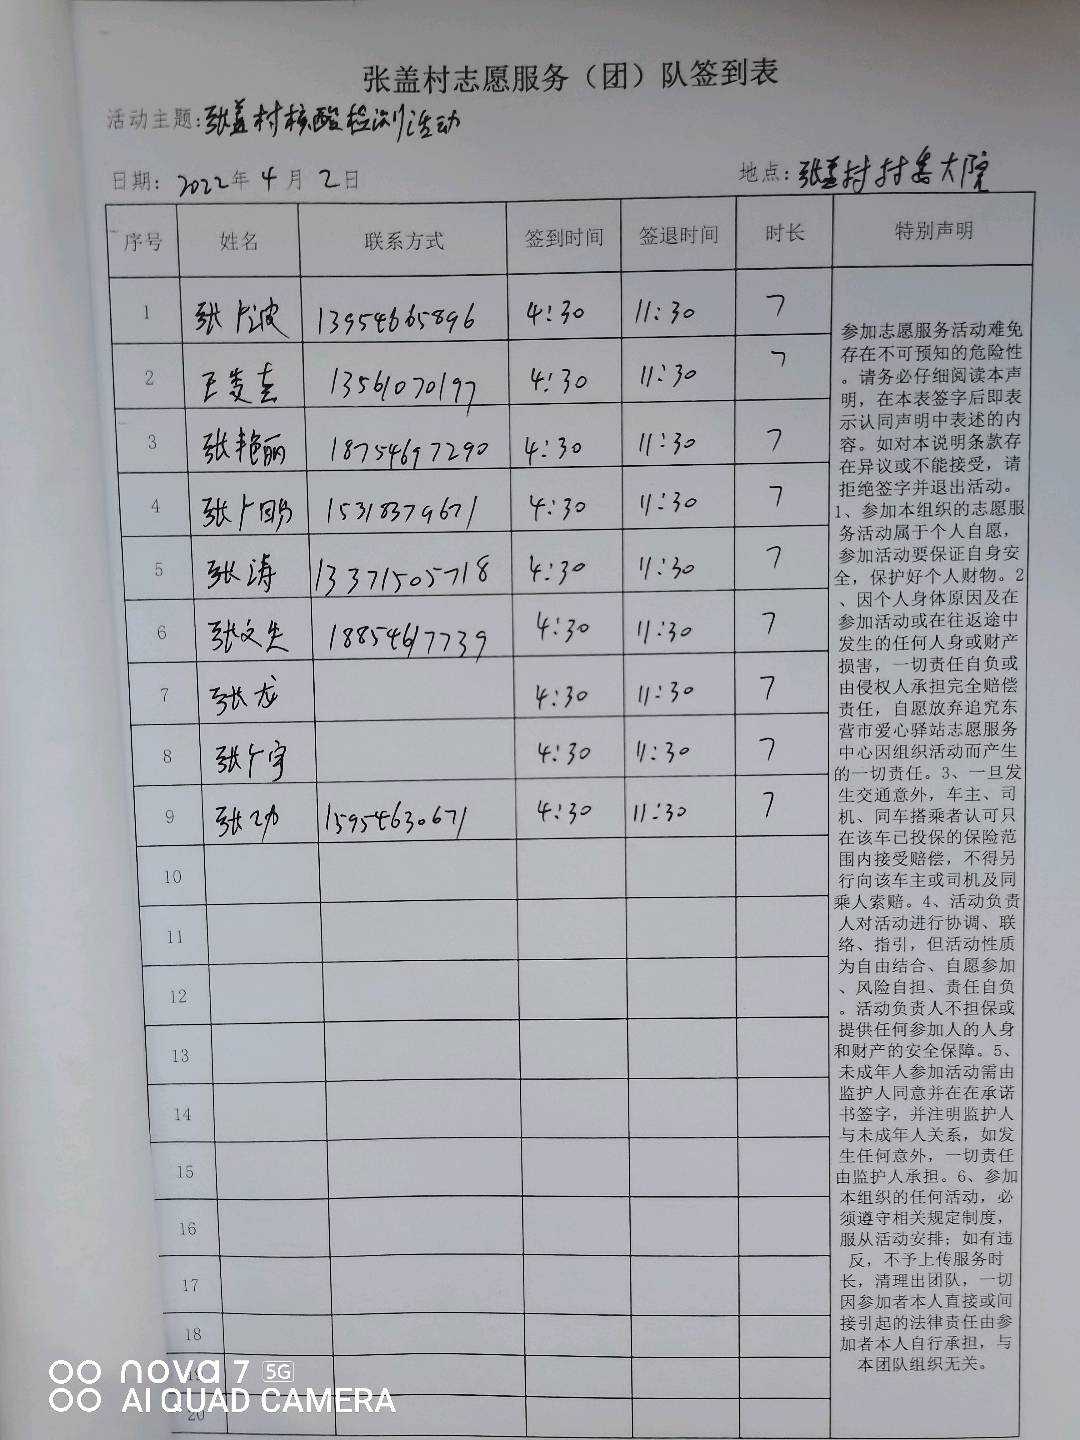 张盖村志愿服务（团）队签到表
活动主题：张盖村核酸检测活动
日期： 2022年 4月 2日 地点：张盖村村委大院
序号 姓名 联系方式 签到时间 签退时间 时长 特别声明
1 张广波 13954665896 4:30 11:30 7
2 王 13561070197 4:30 11:30 7
3 张艳丽 18754697290 4:30 11:30 7
4 张广 15318379671 4:30 11:30 7
5 张涛 13371505718 4:30 11:30 7
6 张文生 18854617739 4:30 11:30 7
7 张龙 4:30 11:30 7
8 张广宇 4:30 11:30 7
9 张功 15954630671 4:30 11:30 7
10
11
12
13
14
15
16
17
18
19
20
参加志愿服务活动难免
存在不可预知的危险性
。请务必仔细阅读本声
明，在本表签字后即表
示认同声明中表述的内
容。如对本说明条款存
在异议或不能接受，请
拒绝签字并退出活动。
1、参加本组织的志愿服
务活动属于个人自愿，
参加活动要保证自身安
全，保护好个人财物。2
、因个人身体原因及在
参加活动或在往返途中
发生的任何人身或财产
损害，一切责任自负或
由侵权人承担完全赔偿
责任，自愿放弃追究东
营市爱心驿站志愿服务
中心因组织活动而产生
的一切责任。3、一旦发
生交通意外，车主、司
机、同车搭乘者认可只
在该车已投保的保险范
围内接受赔偿，不得另
行向该车主或司机及同
乘人索赔。4、活动负责
人对活动进行协调、联
络、指引，但活动性质
为自由结合、自愿参加
、风险自担、责任自负
。活动负责人不担保或
提供任何参加人的人身
和财产的安全保障。5、
未成年人参加活动需由
监护人同意并在在承诺
书签字，并注明监护人
与未成年人关系，如发
生任何意外，一切责任
由监护人承担。6、参加
本组织的任何活动，必
须遵守相关规定制度，
服从活动安排；如有违
反，不予上传服务时
长，清理出团队，一切
因参加者本人直接或间
接引起的法律责任由参
加者本人自行承担，与
本团队组织无关。
nova 7 5G
AI QUAD CAMERA